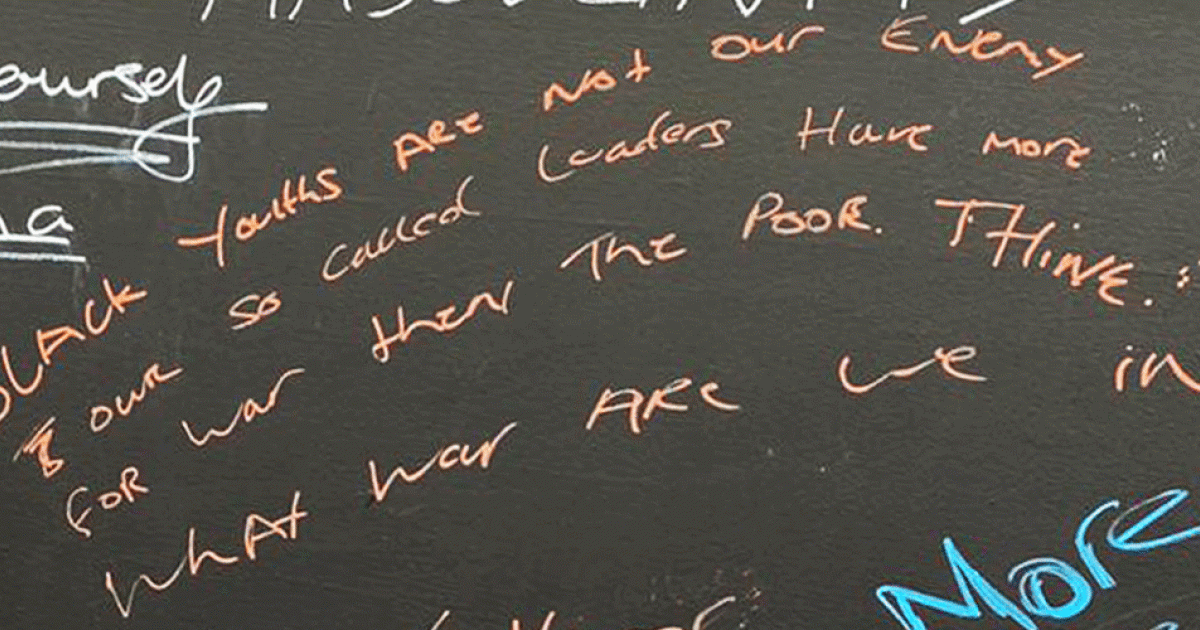 ourself
BLACK Youths ARE Not our Enemy
& our so called Leaders Have more
For war then The POOR. THINK.
What war ARE we in
More